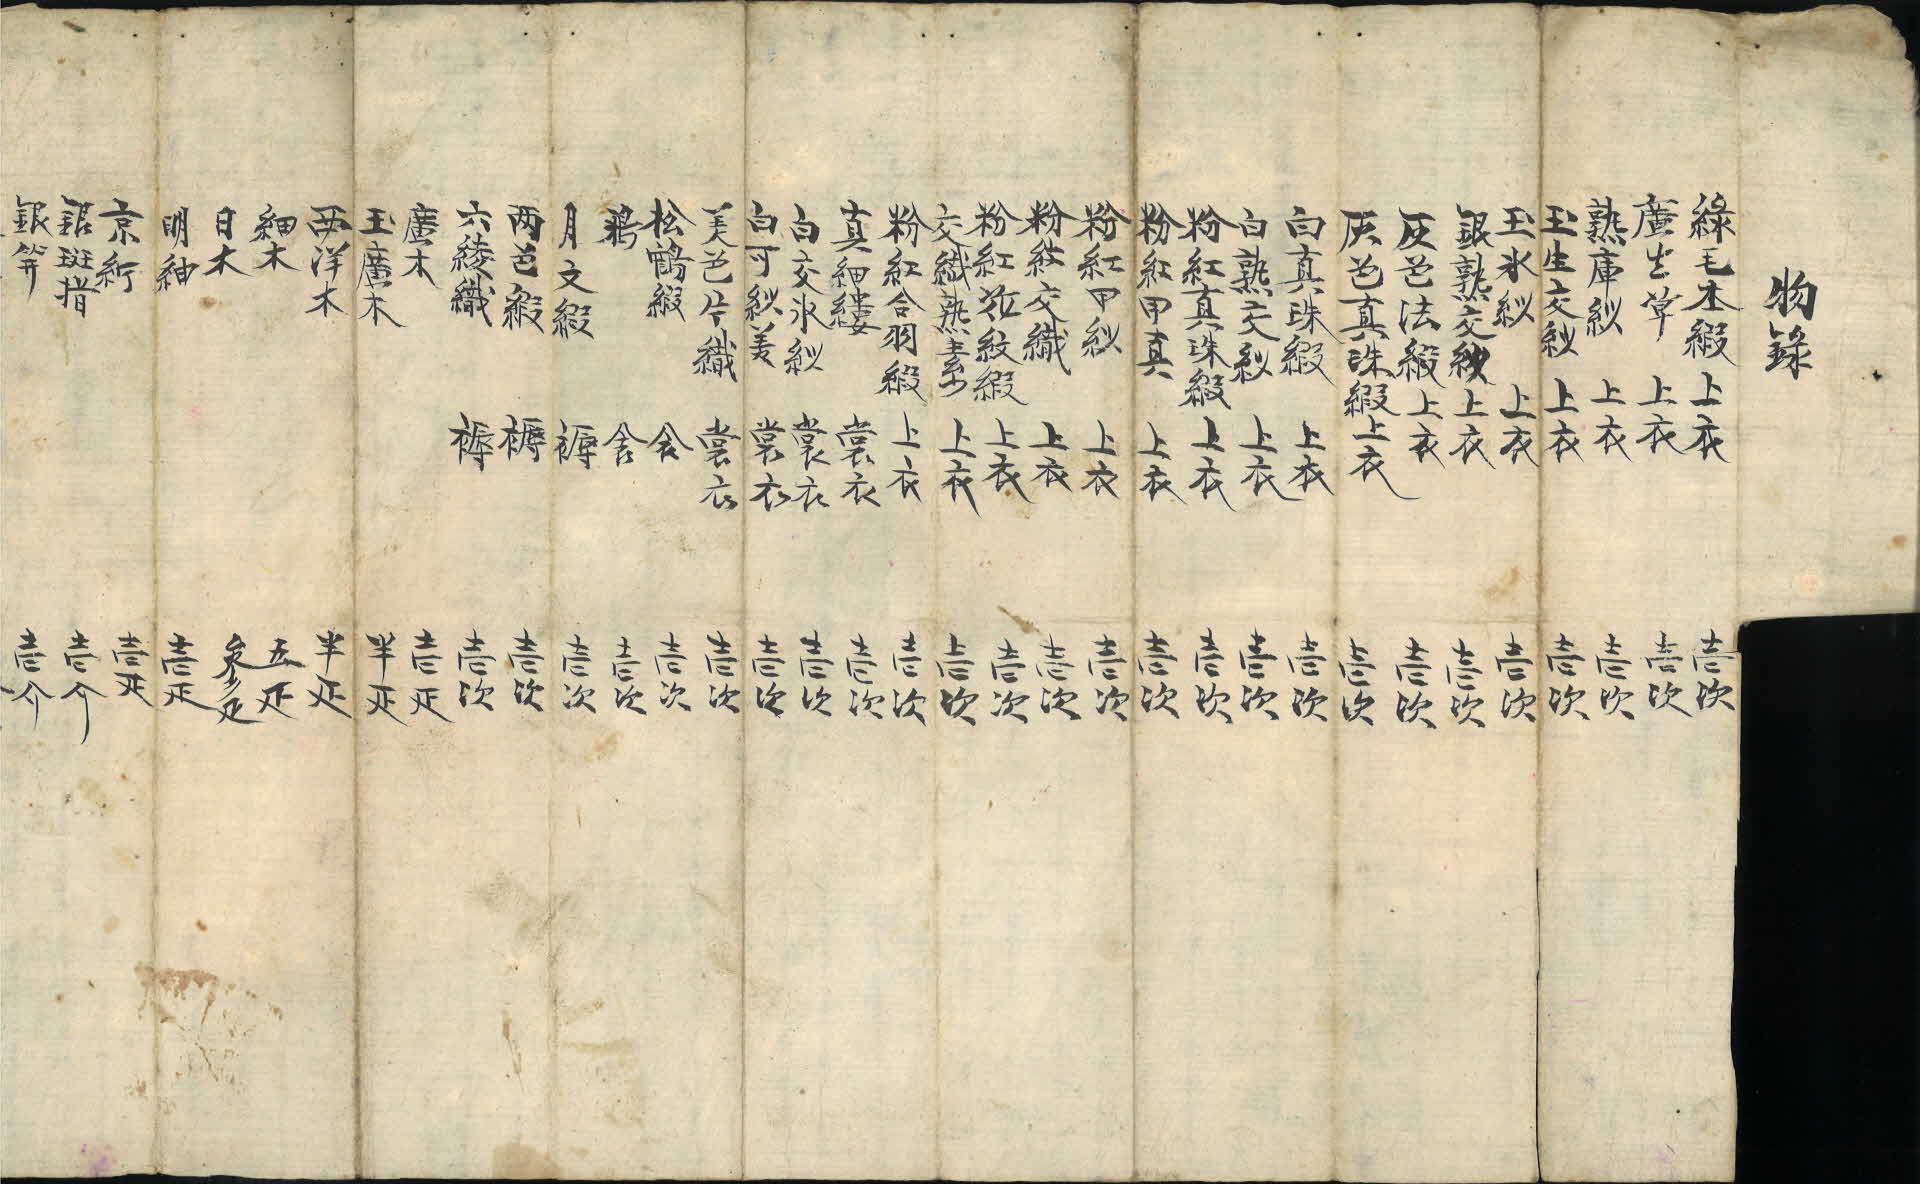 物錄
綠毛本緞 上衣 壹次
廣生草 上衣 壹次
熟庫紗 上衣 壹次
玉生交紗 上衣 壹次
玉氷紗 上衣 壹次
銀熟交紗 上衣 壹次
灰色法緞 上衣 壹次
灰色真珠緞 上衣 壹次
白真珠緞 上衣 壹次
白熟交紗 上衣 壹次
粉紅真珠緞 上衣 壹次
粉紅甲真 上衣 壹次
粉紅甲紗 上衣 壹次
粉紅交織 上衣 壹次
粉紅花紋緞 上衣 壹次
交織熟素 上衣 壹次
粉紅合羽緞 上衣 壹次
真細縷 裳衣 壹次
白交氷紗 裳衣 壹次
白可紗美 裳衣 壹次
美色片織 裳衣 壹次
松鶴緞 衾 壹次
鴉 衾 壹次
月文緞 褥 壹次
両色緞 褥 壹次
六綾織 褥 壹次
廣木 壹疋
玉廣木 半疋
西洋木 半疋
細木 五疋
日木 參疋
明紬 壹疋
京紵 壹疋
銀斑指 壹介
銀笄 壹介